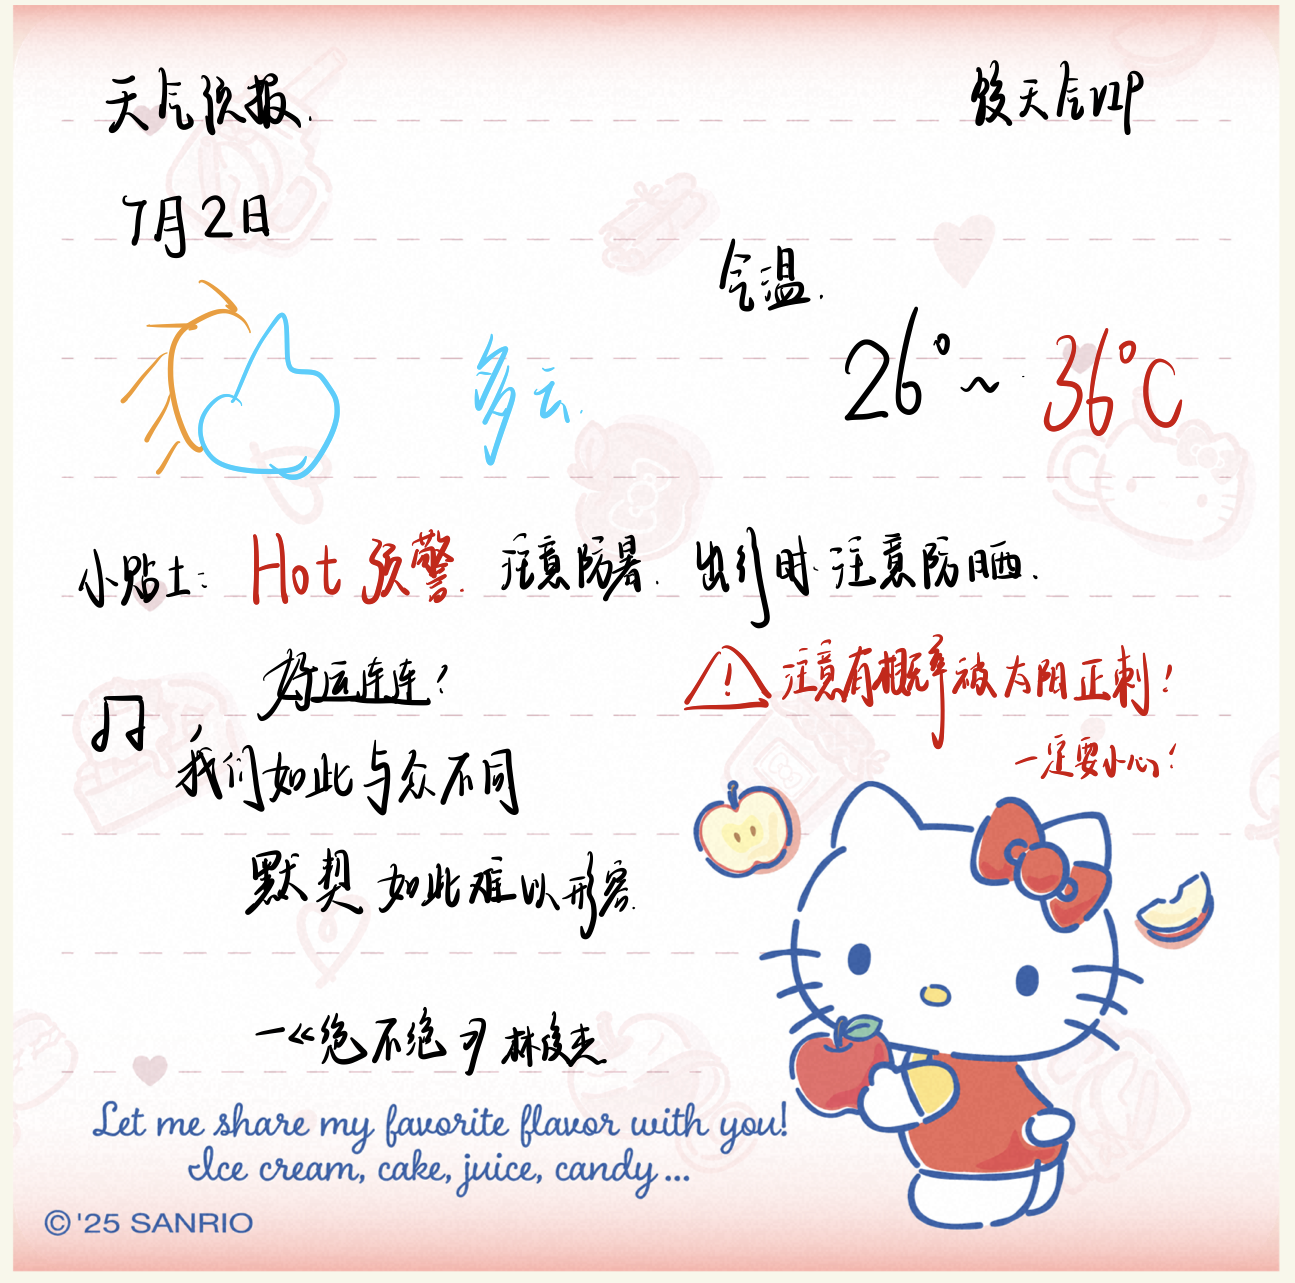 天气预报.
馊天气VIP
7月2日
气温.
26°~36°C
多云.
小贴士: Hot 预警. 注意防暑. 出行时注意防晒.
好运连连!
注意有概率被太阳正刺!
一定要小心!
我们如此与众不同
默契如此难以形容.
—《绝不绝》林俊杰
Let me share my favorite flavor with you!
Ice cream, cake, juice, candy...
© '25 SANRIO